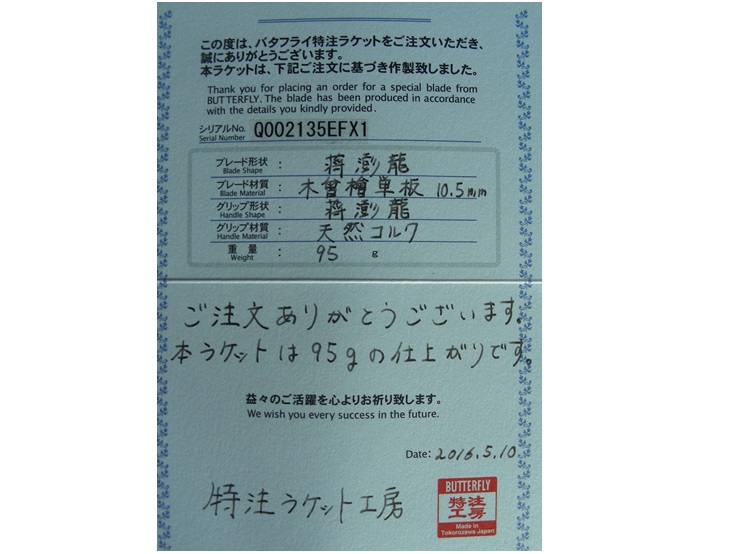 この度は、バタフライ特注ラケットをご注文いただき、
誠にありがとうございます。
本ラケットは、下記ご注文に基づき作製致しました。
Thank you for placing an order for a special blade from
BUTTERFLY. The blade has been produced in accordance
with the details you kindly provided.
シリアルNo. Q002135EFX1
Serial Number
ブレード形状 : 蒋澎龍
Blade Shape
ブレード材質 : 木曾檜単板 10.5mm
Blade Material
グリップ形状 : 蒋澎龍
Handle Shape
グリップ材質 : 天然コルク
Handle Material
重量 : 95 g
Weight
ご注文ありがとうございます。
本ラケットは95gの仕上がりです。
益々のご活躍を心よりお祈り致します。
We wish you every success in the future.
Date: 2016.5.10
特注ラケット工房
BUTTERFLY
特注
工房
Made in
Tokorozawa Japan